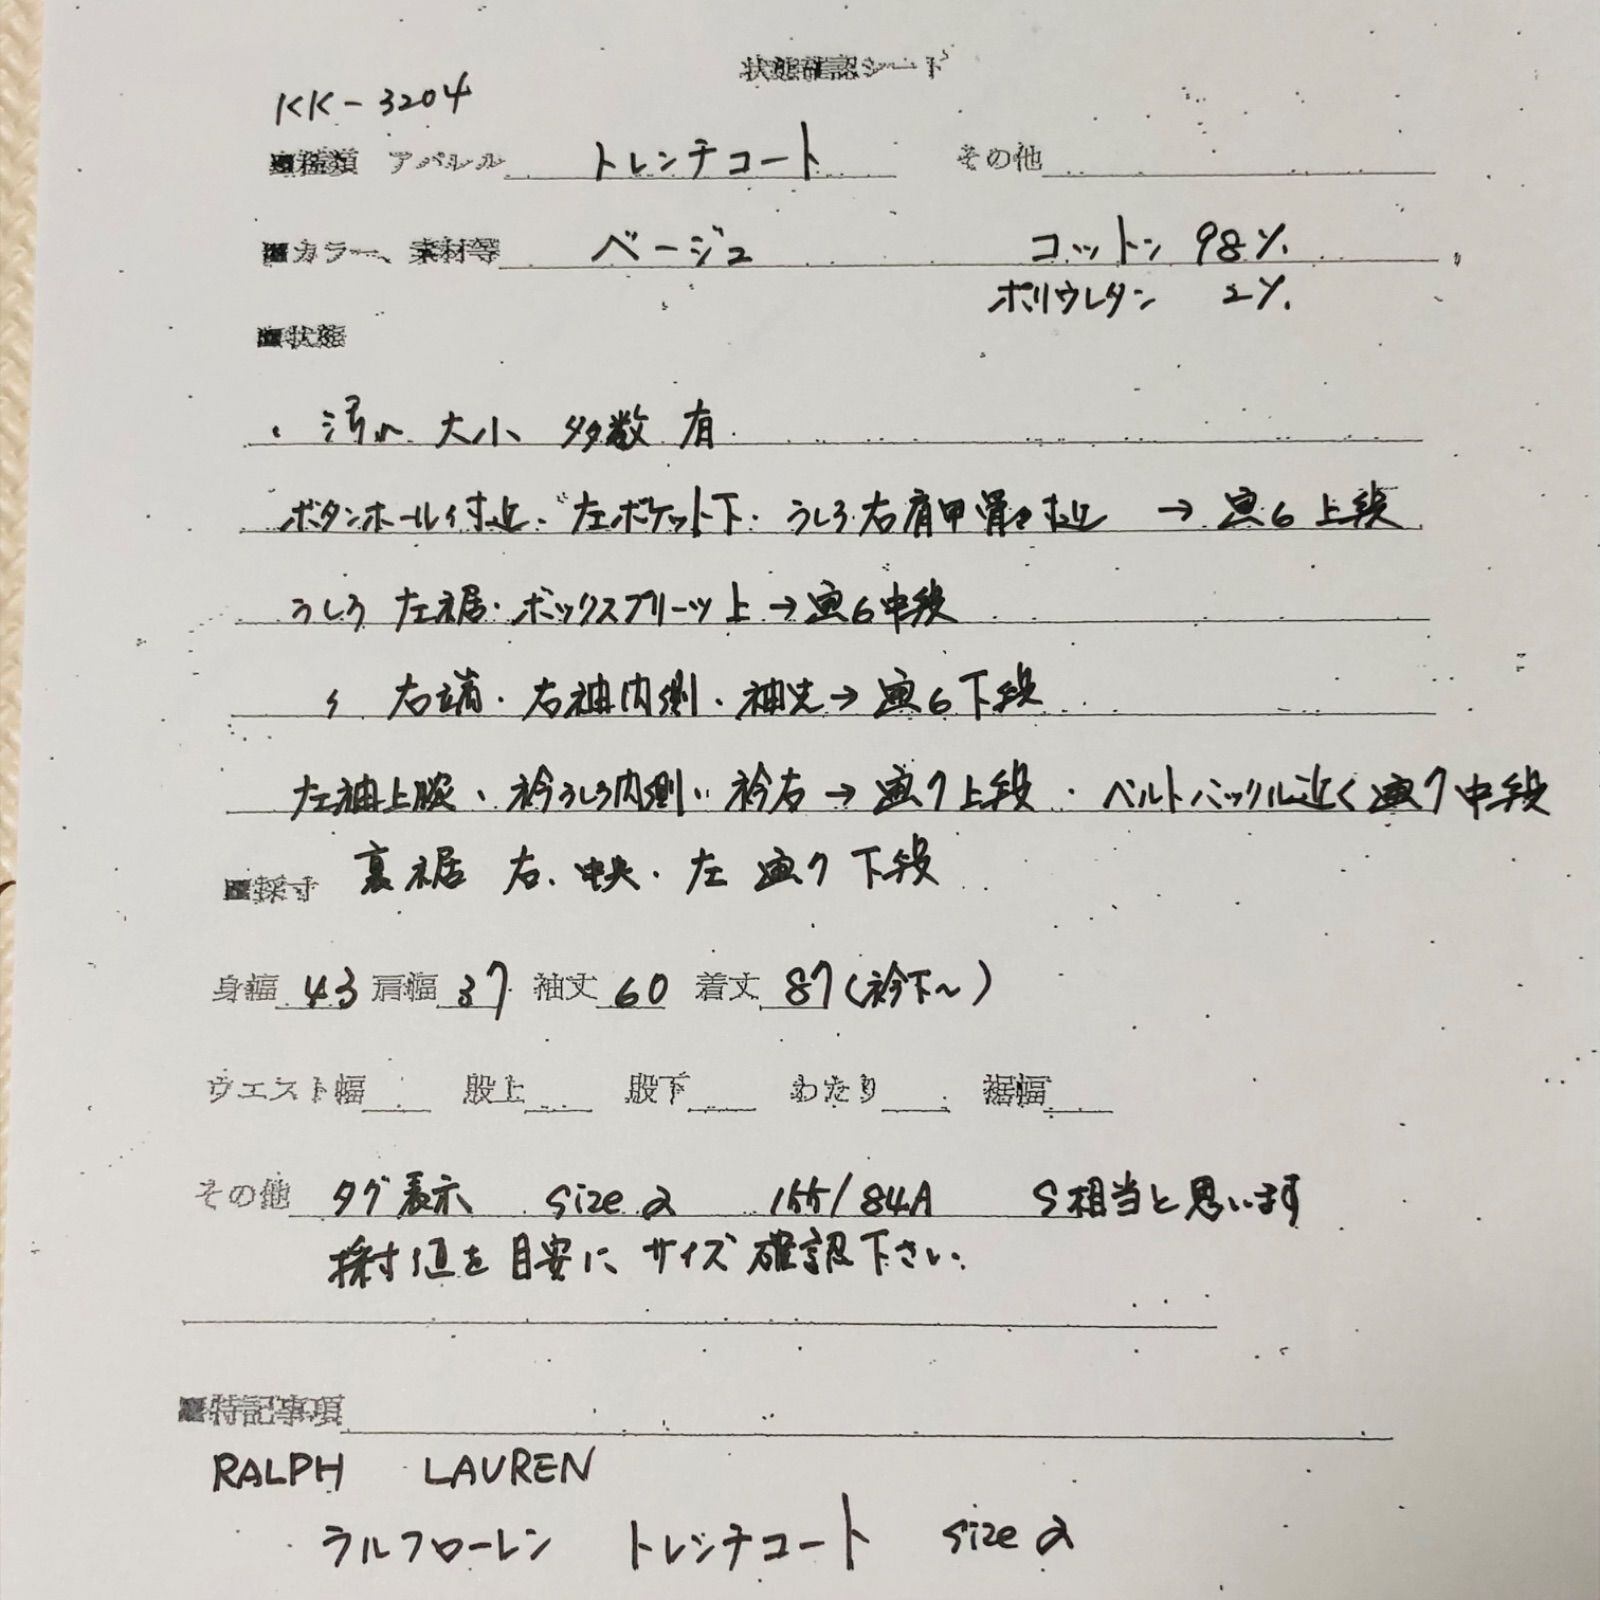 状態確認シート
KK-3204
■種類 アパレル トレンチコート その他
■カラー、素材等 ベージュ コットン 98%
ポリウレタン 2%
■状態
・汚れ 大小 多数 有
ボタンホール付近、左ポケット下・うしろ右肩甲骨付近 → 画6 上段
うしろ 左裾・ボックスプリーツ上→画6中段
〃 右端・右袖内側・袖先→画6下段
左袖上腕、衿うしろ内側、衿右→画7上段・ベルトバックル近く画7中段
裏裾 右、中央・左 画7 下段
■採寸
身幅 43 肩幅 37 袖丈 60 着丈 87(衿下〜)
ウエスト幅 股上 股下 わたり 裾幅
その他 タグ表示 size 2 155/84A S相当と思います
採寸値を目安にサイズ確認下さい。
■特記事項
RALPH LAUREN
ラルフローレン トレンチコート size 2